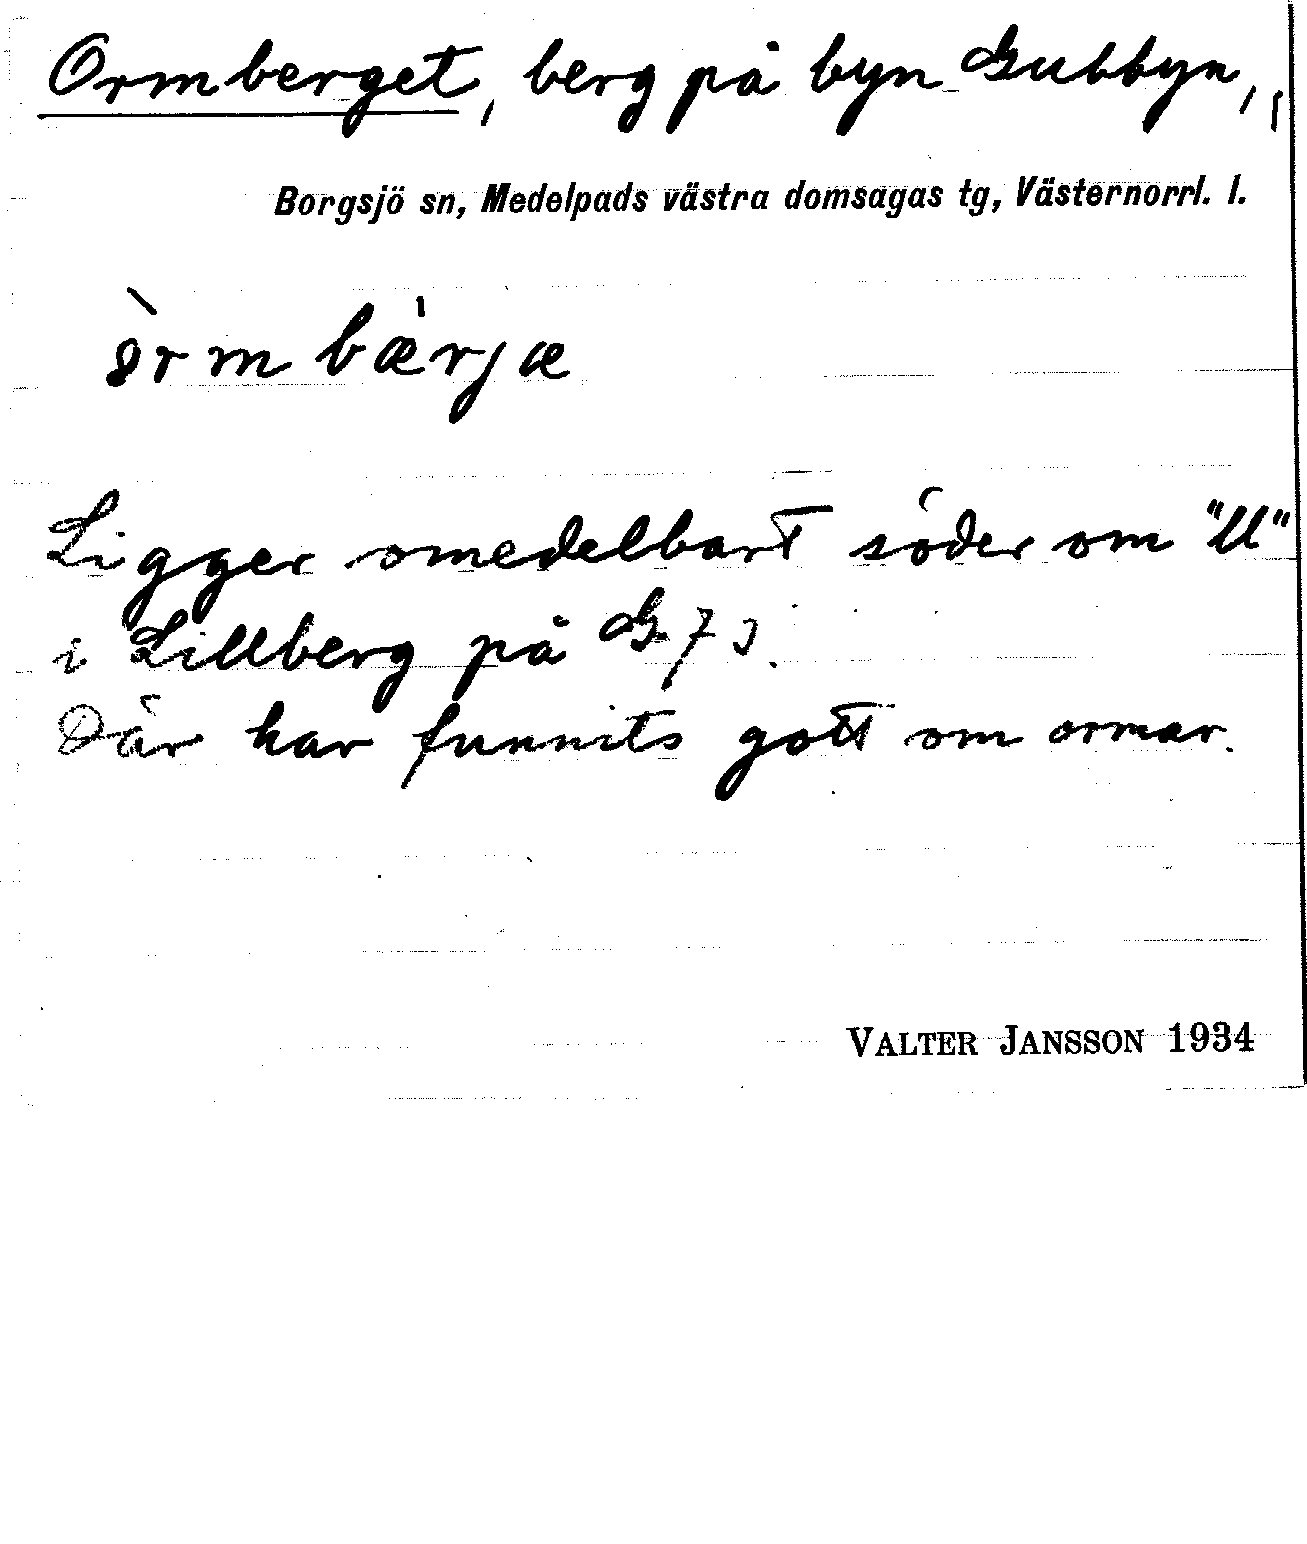 Ormberget, berg på byn Gubbyn,
Borgsjö sn, Medelpads västra domsagas tg, Västernorrl. l.
òrm bæ̀rjæ
Ligger omedelbart söder om "U"
i Lillberg på G. 7 J.
Där har funnits gott om ormar.
VALTER JANSSON 1934